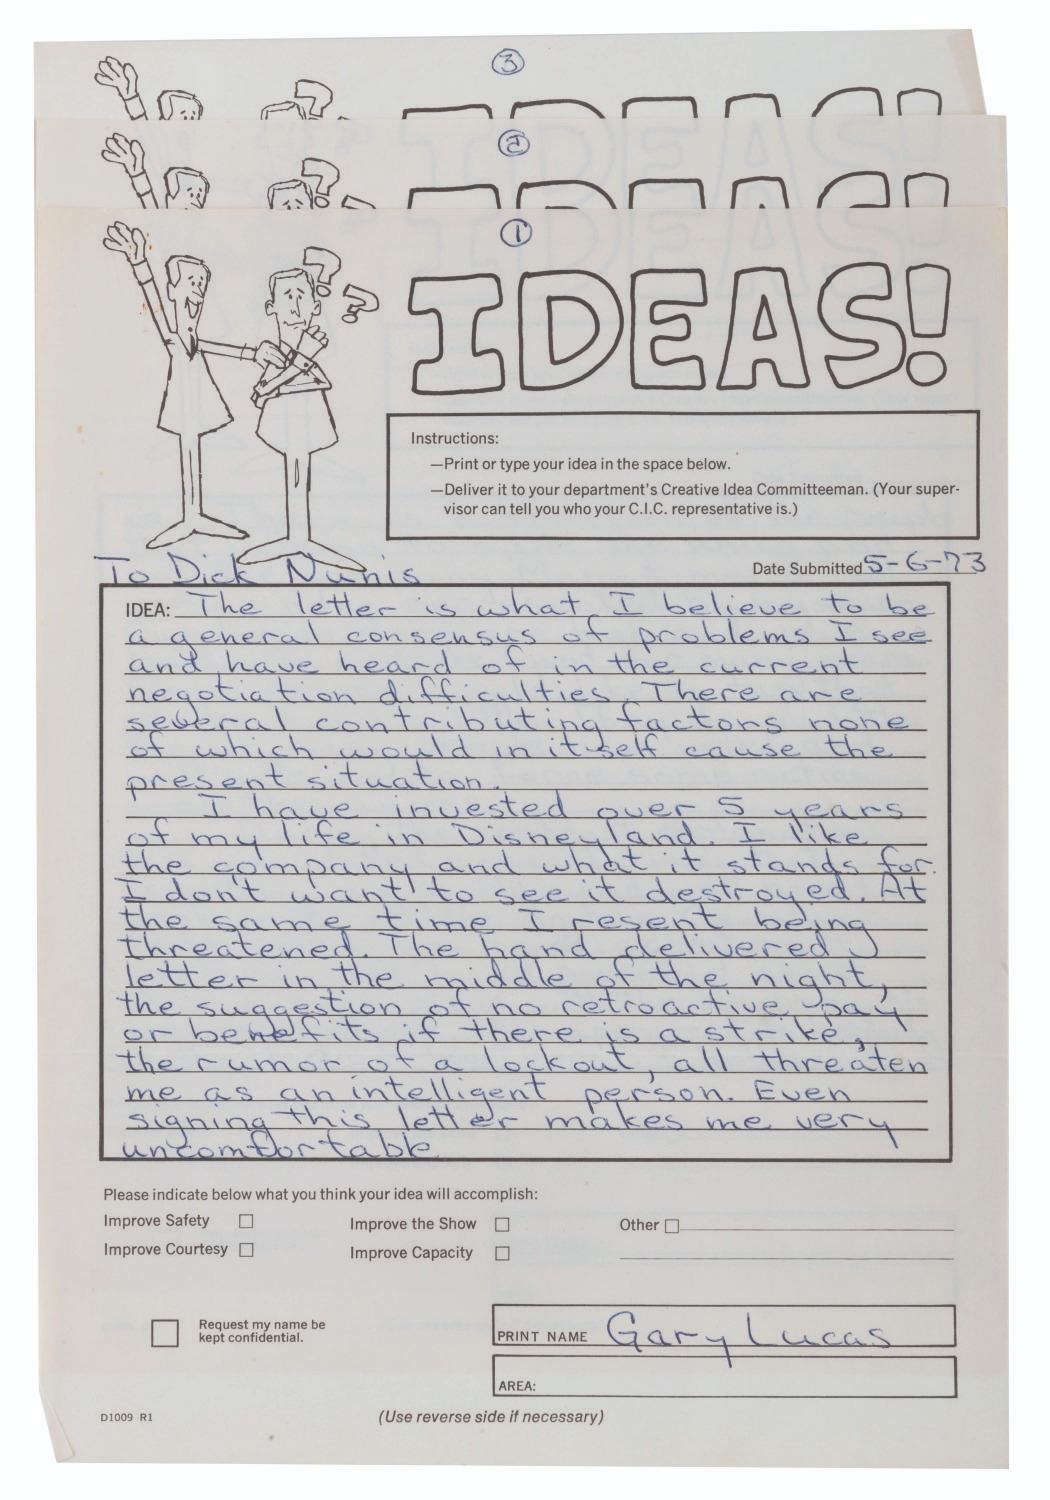 3
IDEAS!
2
IDEAS!
1
IDEAS!
Instructions:
—Print or type your idea in the space below.
—Deliver it to your department's Creative Idea Committeeman. (Your super-
visor can tell you who your C.I.C. representative is.)
To Dick Nunis
Date Submitted 5-6-73
IDEA: The letter is what I believe to be
a general consensus of problems I see
and have heard of in the current
negotiation difficulties. There are
several contributing factors none
of which would in itself cause the
present situation.
I have invested over 5 years
of my life in Disneyland. I like
the company and what it stands for.
I don't want to see it destroyed. At
the same time I resent being
threatened. The hand delivered
letter in the middle of the night,
the suggestion of no retroactive pay
or benefits if there is a strike,
the rumor of a lockout, all threaten
me as an intelligent person. Even
signing this letter makes me very
uncomfortable
Please indicate below what you think your idea will accomplish:
Improve Safety Improve the Show Other
Improve Courtesy Improve Capacity
Request my name be
kept confidential.
PRINT NAME Gary Lucas
AREA:
D1009 R1
(Use reverse side if necessary)